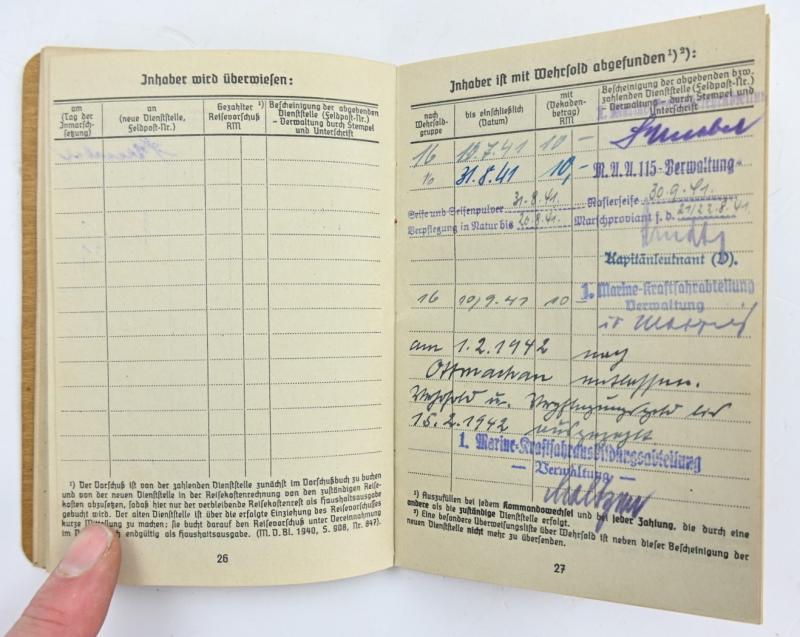 Inhaber wird überwiesen:
am
(Tag der
Inmarsch-
setzung)
an
(neue Dienststelle,
Feldpost-Nr.)
Gezahlter ¹)
Reisevorschuß
RM
Bescheinigung der abgebenden
Dienststelle (Feldpost-Nr.)
- Verwaltung durch Stempel
und Unterschrift
¹) Der Vorschuß ist von der zahlenden Dienststelle zunächst im Vorschußbuch zu buchen
und von der neuen Dienststelle in der Reisekostenrechnung von den zuständigen Reise-
kosten abzusetzen, sodaß hier nur der verbleibende Reisekostenrest als Haushaltsausgabe
gebucht wird. Der alten Dienststelle ist über die erfolgte Einziehung des Reisevorschusses
kurze Mitteilung zu machen; sie bucht darauf den Reisevorschuß unter Vereinnahmung
im endgültig als Haushaltsausgabe. (M. D. Bl. 1940, S. 608, Nr. 847).
26
Inhaber ist mit Wehrsold abgefunden ¹) ²):
nach
Wehrsold-
gruppe
bis einschließlich
(Datum)
mit
(Dekaden-
betrag) RM
Bescheinigung der abgebenden bzw.
zahlenden Dienststelle (Feldpost-Nr.)
- Verwaltung - durch Stempel und
Unterschrift
16 10.7.41 10 -
31.8.41 10,- M.A.A.115-Verwaltung-
Seife und Seifenpulver 31.8.41. Rasierseife 30.9.41.
Verpflegung in Natur bis 20.8.41. Marschproviant f. d. 21/22.8.41.
Kapitänleutnant (V).
16 10.9.41 10 - 1. Marine-Kraftfahrabteilung
Verwaltung
am 1.2.1942 nach
Ottmachau entlassen.
Wehrsold u. Verpflegungsgeld bis
15.2.1942 ausgezahlt
1. Marine-Kraftfahrausbildungsabteilung
— Verwaltung —
¹) Auszufüllen bei jedem Kommandowechsel und bei jeder Zahlung, die durch eine
andere als die zuständige Dienststelle erfolgt.
²) Eine besondere Überweisungsliste über Wehrsold ist neben dieser Bescheinigung der
neuen Dienststelle nicht mehr zu übersenden.
27